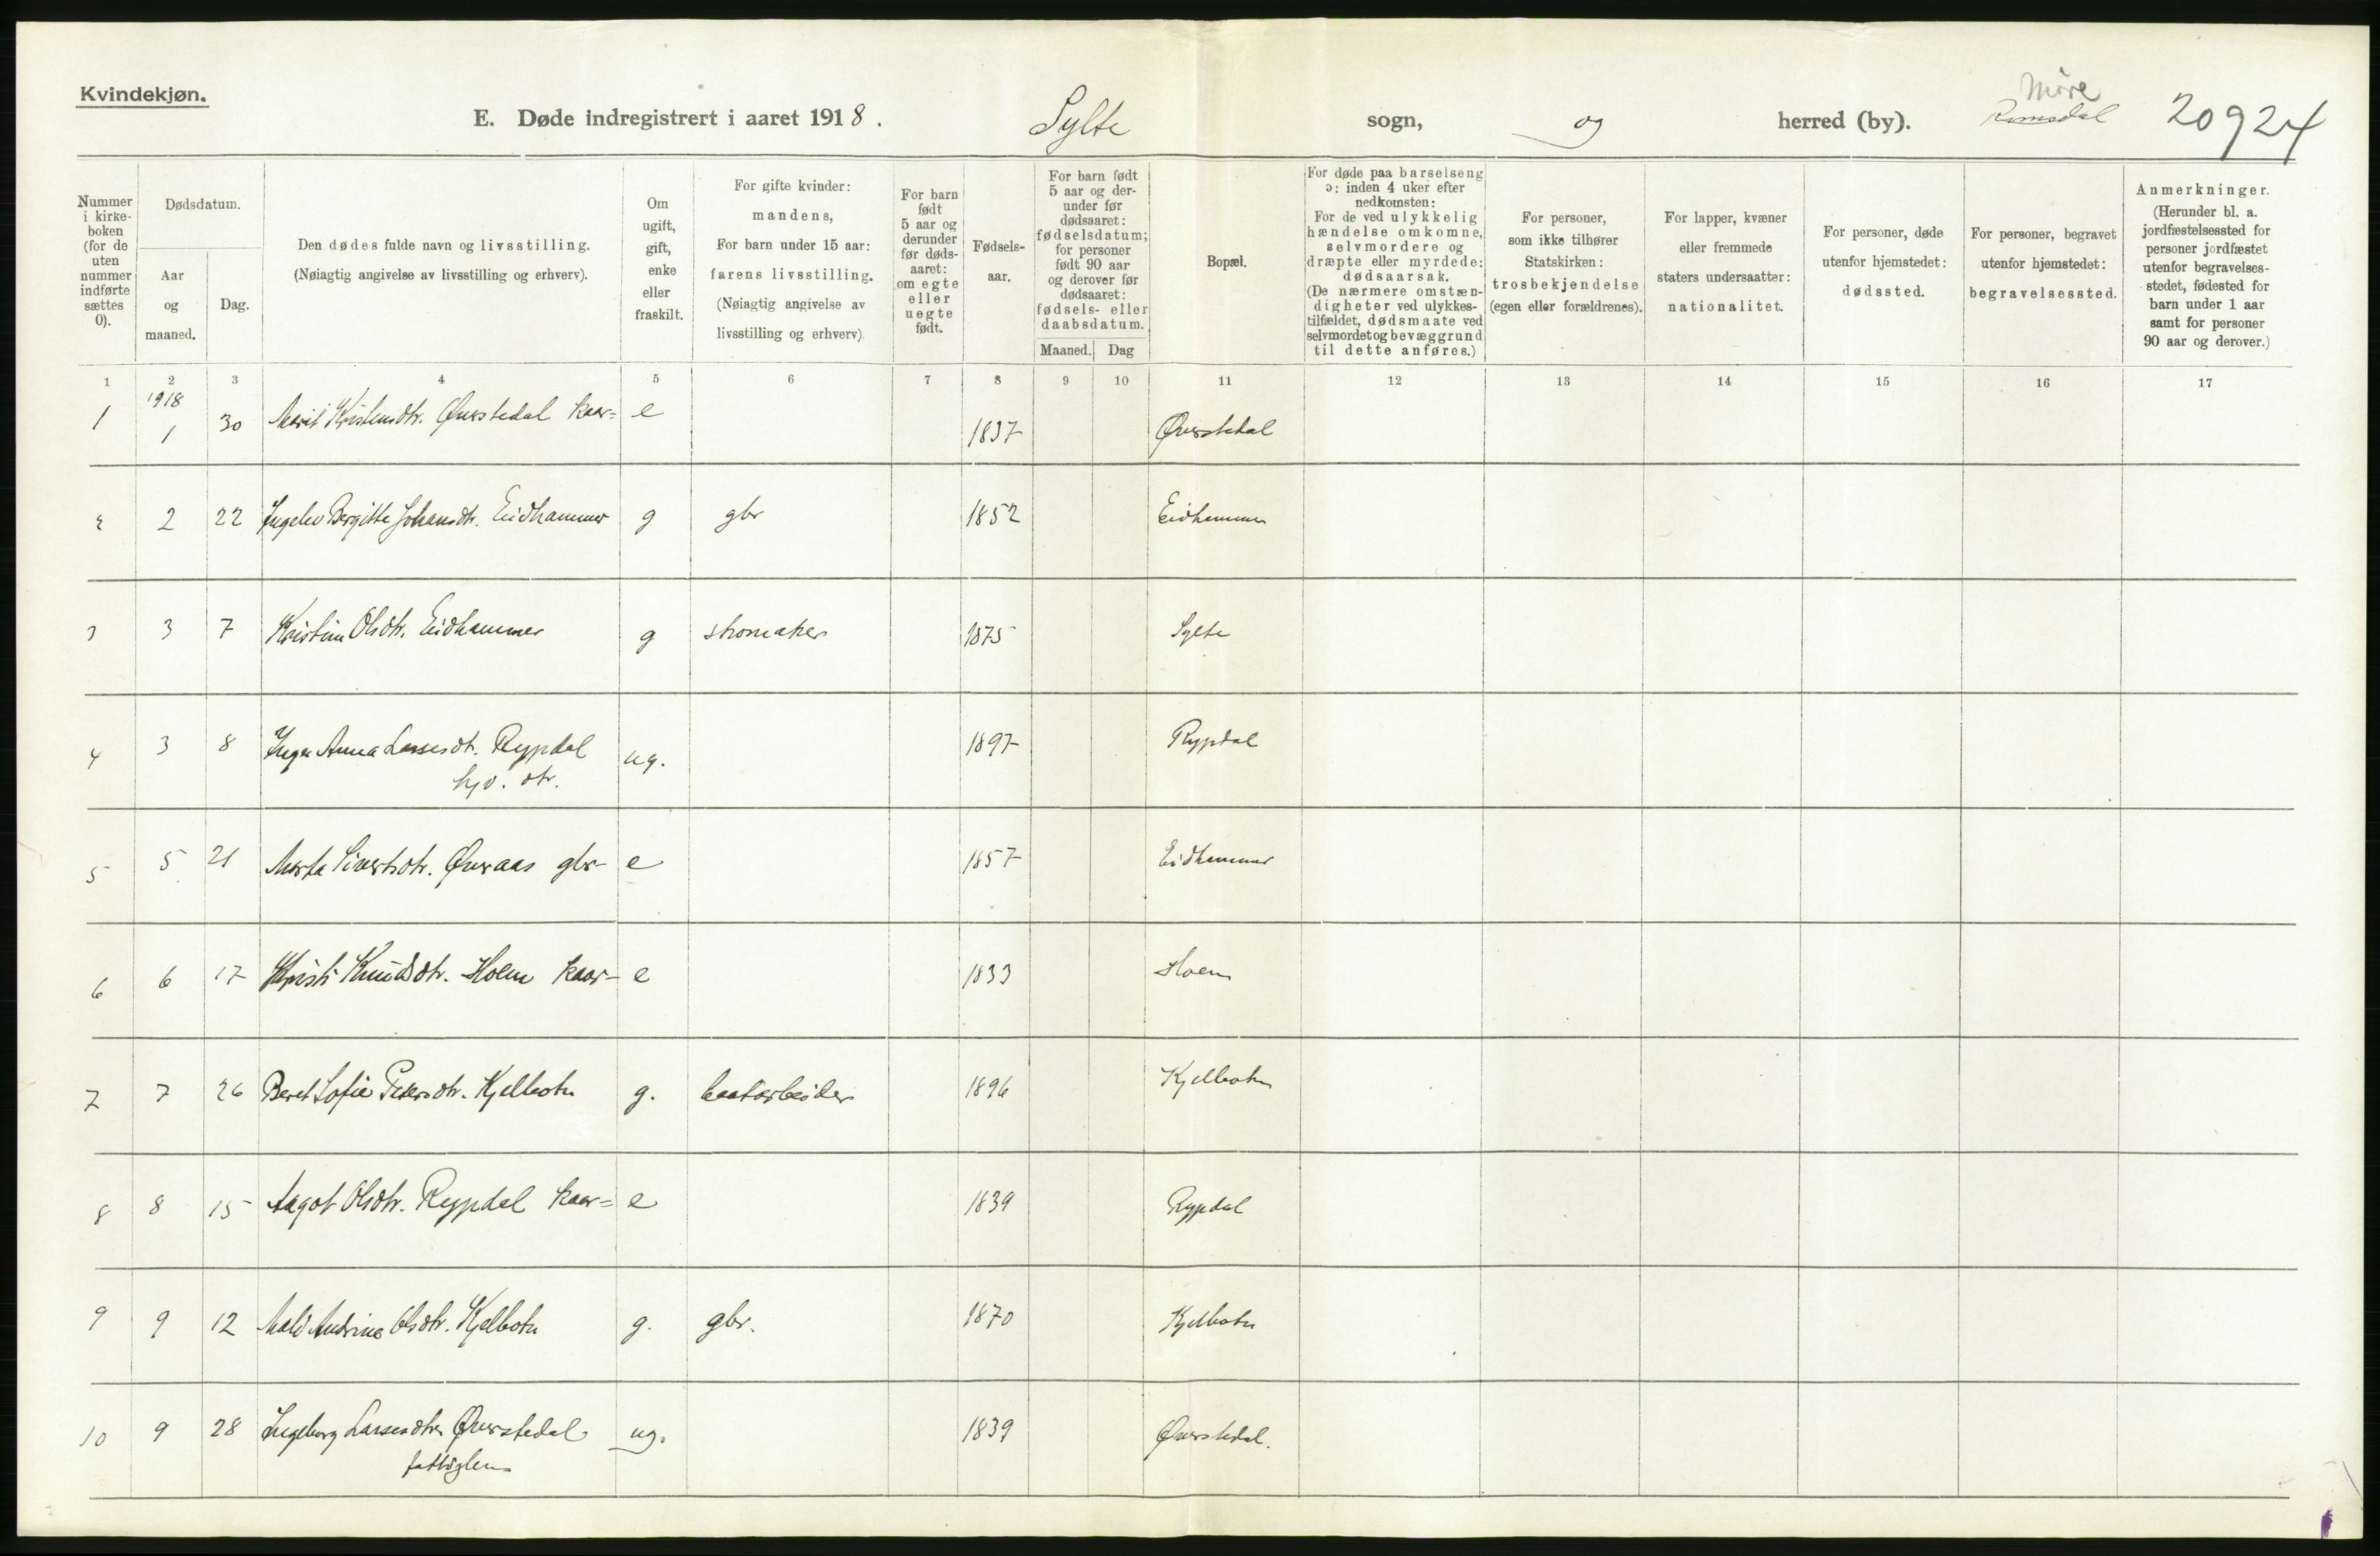 Kvindekjøn.
E. Døde indregistrert i aaret 1918. Sylte sogn, og herred (by). Møre Romsdal 20924
Nummer i kirke-boken (for de uten nummer indførte sættes 0).
Dødsdatum.
Aar og maaned.
Dag.
Den dødes fulde navn og livsstilling.
(Nøiagtig angivelse av livsstilling og erhverv).
Om ugift, gift, enke eller fraskilt.
For gifte kvinder:
mandens,
For barn under 15 aar:
farens livsstilling.
(Nøiagtig angivelse av
livsstilling og erhverv).
For barn født 5 aar og derunder før døds-aaret: om egte eller uegte født.
Fødsels-aar.
For barn født 5 aar og der-under før dødsaaret: fødselsdatum; for personer født 90 aar og derover før dødsaaret: fødsels- eller daabsdatum.
Maaned. Dag
Bopæl.
For døde paa barselseng
ɔ: inden 4 uker efter
nedkomsten:
For de ved ulykkelig
hændelse omkomne,
selvmordere og
dræpte eller myrdede:
dødsaarsak.
(De nærmere omstæn-
digheter ved ulykkes-
tilfældet, dødsmaate ved
selvmordet og bevæggrund
til dette anføres.)
For personer,
som ikke tilhører
Statskirken:
trosbekjendelse
(egen eller forældrenes).
For lapper, kvæner
eller fremmede
staters undersaatter:
nationalitet.
For personer, døde
utenfor hjemstedet:
dødssted.
For personer, begravet
utenfor hjemstedet:
begravelsessted.
Anmerkninger.
(Herunder bl. a.
jordfæstelsessted for
personer jordfæstet
utenfor begravelses-
stedet, fødested for
barn under 1 aar
samt for personer
90 aar og derover.)
1 2 3 4 5 6 7 8 9 10 11 12 13 14 15 16 17
1 1918 1 30 Marit Kristensdtr. Øverstedal kaar= e 1837 Øverstedal
2 2 22 Ingelev Bergitte Johansdtr. Eidhammer g gbr 1852 Eidhammer
3 3 7 Kristine Olsdtr. Eidhammer g skomaker 1875 Sylte
4 3 8 Inga Anna Lassesdt. Rypdal ug. 1897 Rypdal
hjv. dtr.
5 5 21 Marta Sivertsdtr. Øveraas gbr- e 1857 Eidhammer
6 6 17 Kristi Knudsdtr. Hoem kaar- e 1833 Hoem
7 7 26 Beret Sofie Petersdtr. Kjelbotn g. baatarbeider 1896 Kjelbotn
8 8 15 Aagot Olsdtr. Rypdal kaar= e 1839 Rypdal
9 9 12 Mali Andrine Olsdtr. Kjelbotn g. gbr. 1870 Kjelbotn
10 9 28 Ingeborg Larsesdtr. Øverstedal ug. 1839 Øverstedal.
fattiglem